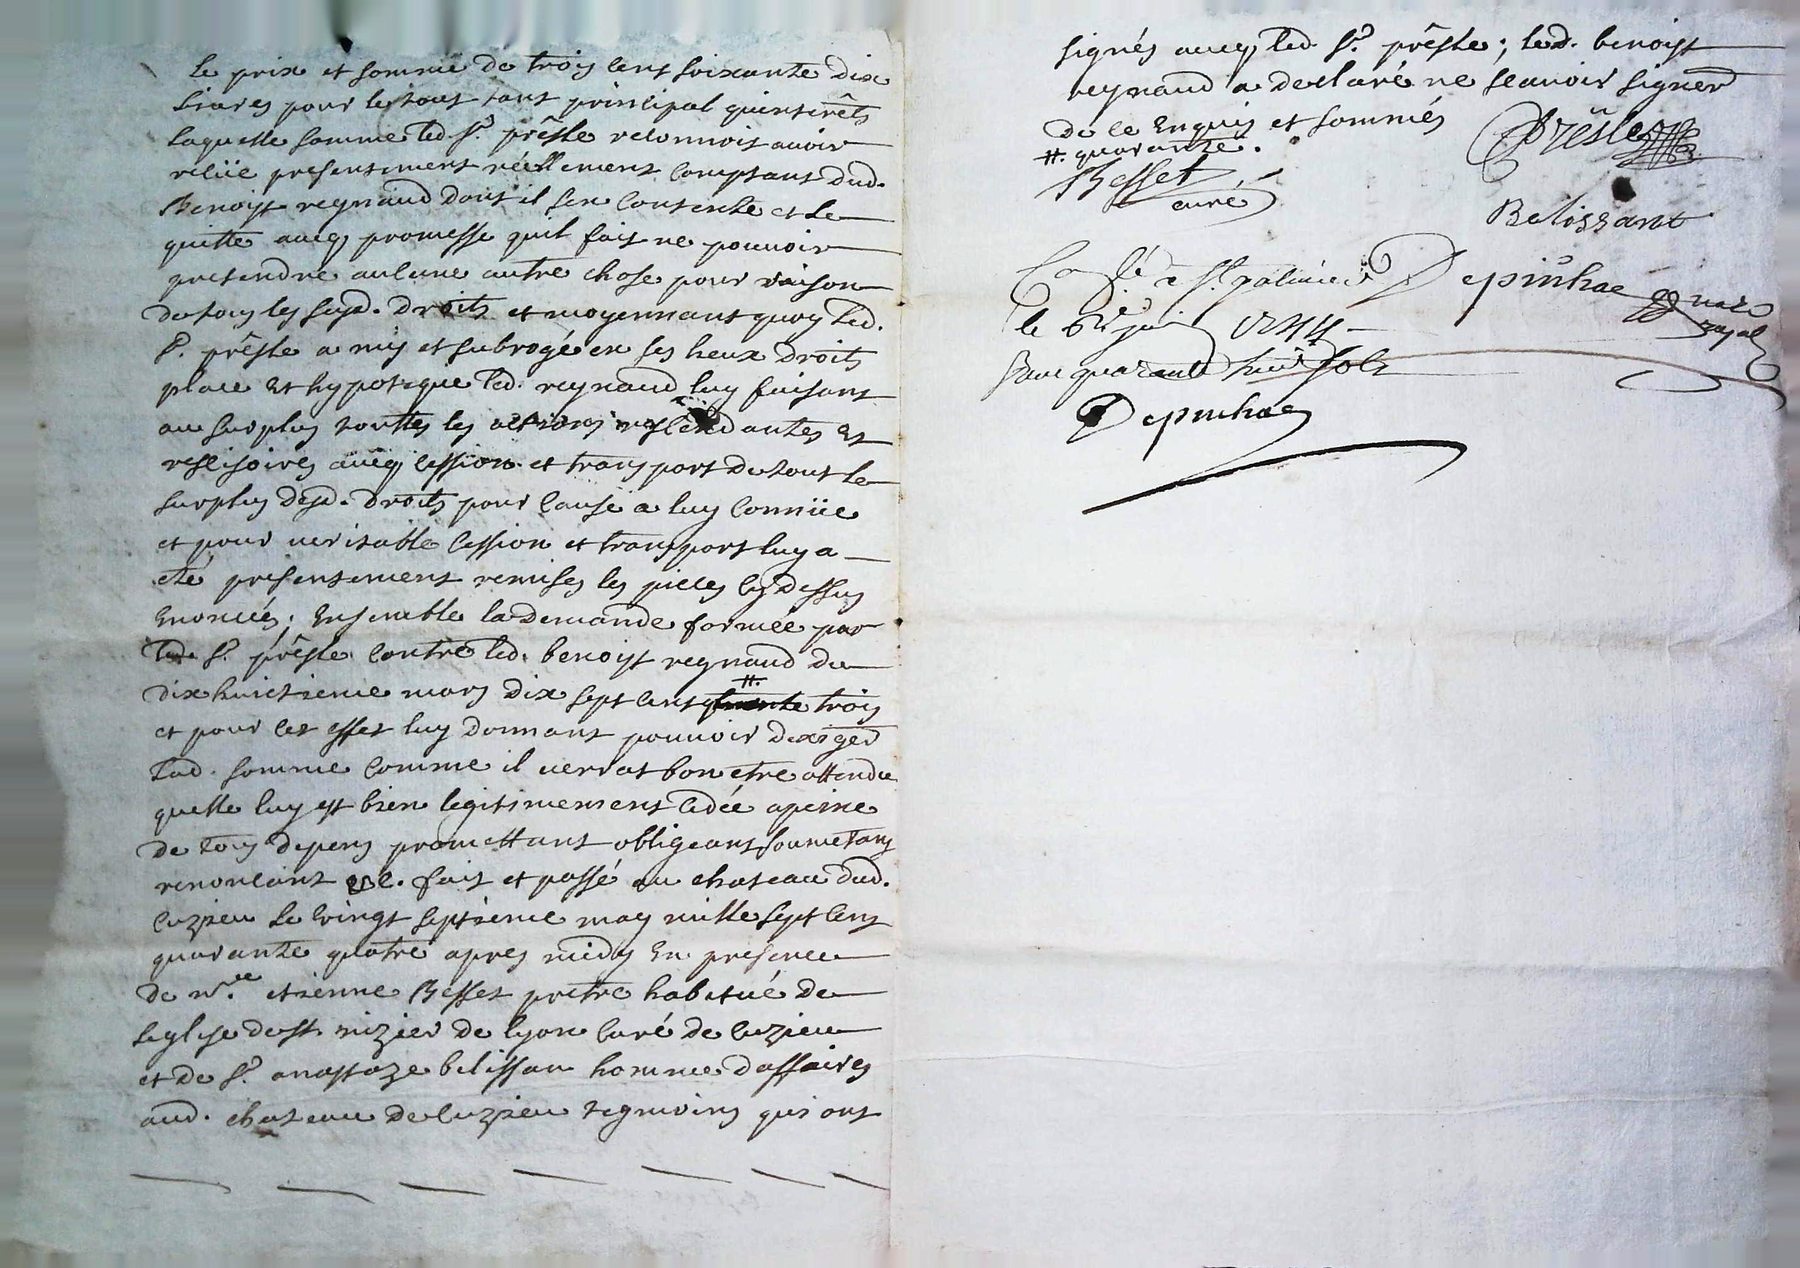 le prix et somme de trois cens soixante dix
livres pour le tous tant principal qu'interêts
laquelle somme led. Sr. prêsle reconnois avoir
reciie presentement réellement comptant dud.
Benoist regnaud dont il sen contente et le
quitte aucq promesse quil fait ne pouvoir
pretendre aucune autre chose pour raison
de tous les susd. droits et moyennant quoy led.
Sr. prêsle a mis et subrogé en ses lieux droits
place et hypoteque led. regnaud luy faisant
au surplus touttes les actions resCindantes et
rescisoires aucq cession et transport de tout le
surplus desd. droits pour cause a luy connüe
et pour veritable cession et transport luy a
eté presentement remises les pieces cy dessus
enoncées; ensemble la demande formée par
led. Sr. prêsle contre led. benoist regnaud du
dix huictieme mars dix sept cens #. trois
et pour cet effet luy donnant pouvoir dexiger
lad. somme comme il verrat bon etre attendu
quelle luy est bien legitimement cedée apeine
de tous depens promettant obligeant soumetans
renonceant &c. fait et passé au chateau dud.
Cuzieu le vingt septieme may mille sept cens
quarante quatre apres midy en presence
de mre. etienne Besset pretre habitué de
leglise de st. nizier de lyon curé de Cuzieu
et de Sr. anastaze belissan homme daffaires
aud. chateau de Cuzieu tegmoins qui ont
signés aucq led. Sr. prêsle; led. benoist
regnaud a declaré ne scavoir signer
de ce enquis et sommés
#. quarante. Prêsle
Besset
curé
Belissant
Conlé a St. galmier Depinhac nore
royal
le 6e juin 1744
Receu quarante huit sols
Depinhac